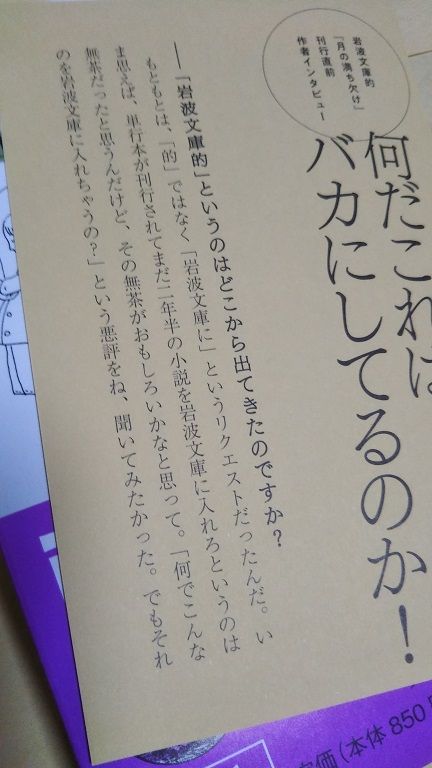 岩波文庫的
「月の満ち欠け」
刊行直前
作者インタビュー
何だこれは
バカにしてるのか！
──「岩波文庫的」というのはどこから出てきたのですか？
もともとは、「的」ではなく「岩波文庫に」というリクエストだったんだ。い
ま思えば、単行本が刊行されてまだ二年半の小説を岩波文庫に入れろというのは
無茶だったと思うんだけど、その無茶がおもしろいかなと思って。「何でこんな
のを岩波文庫に入れちゃうの？」という悪評をね、聞いてみたかった。でもそれ
定価（本体 850 円